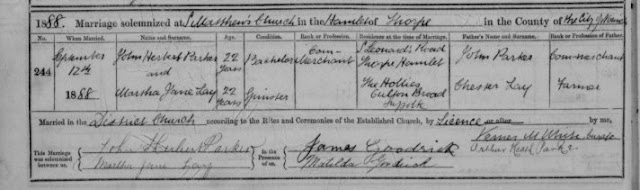 1888. Marriage solemnized at St Matthew's Church in the Hamlet of Thorpe in the County of the City of Norwich
No. When Married. Name and Surname. Age. Condition. Rank or Profession. Residence at the time of Marriage. Father's Name and Surname. Rank or Profession of Father.
244 September 12th 1888 John Herbert Parker 22 Years Bachelor Corn-Merchant St Leonards Road Thorpe Hamlet John Parker Corn-merchant
and
Martha Jane Lay 22 Years Spinster The Hollies Oulton Broad Suffolk Chester Lay Farmer
Married in the District Church according to the Rites and Ceremonies of the Established Church, by Licence or after by me,
This Marriage was solemnized between us, John Herbert Parker in the Presence of us, James Goodrick
Martha Jane Lay Matilda Goodrick